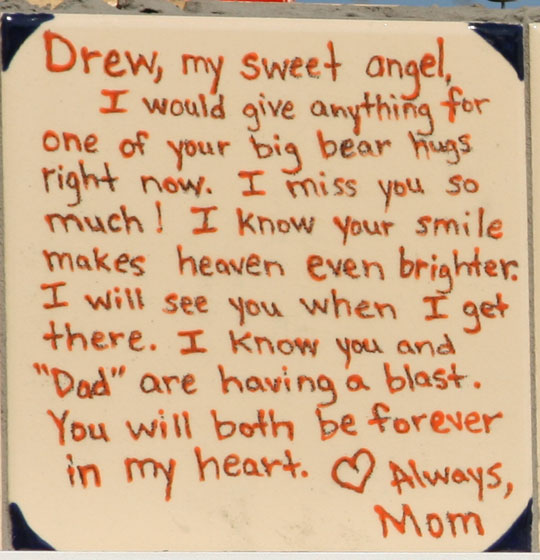 Drew, my sweet angel,
I would give anything for
one of your big bear hugs
right now. I miss you so
much! I know your smile
makes heaven even brighter.
I will see you when I get
there. I know you and
"Dad" are having a blast.
You will both be forever
in my heart. ♡ Always,
Mom